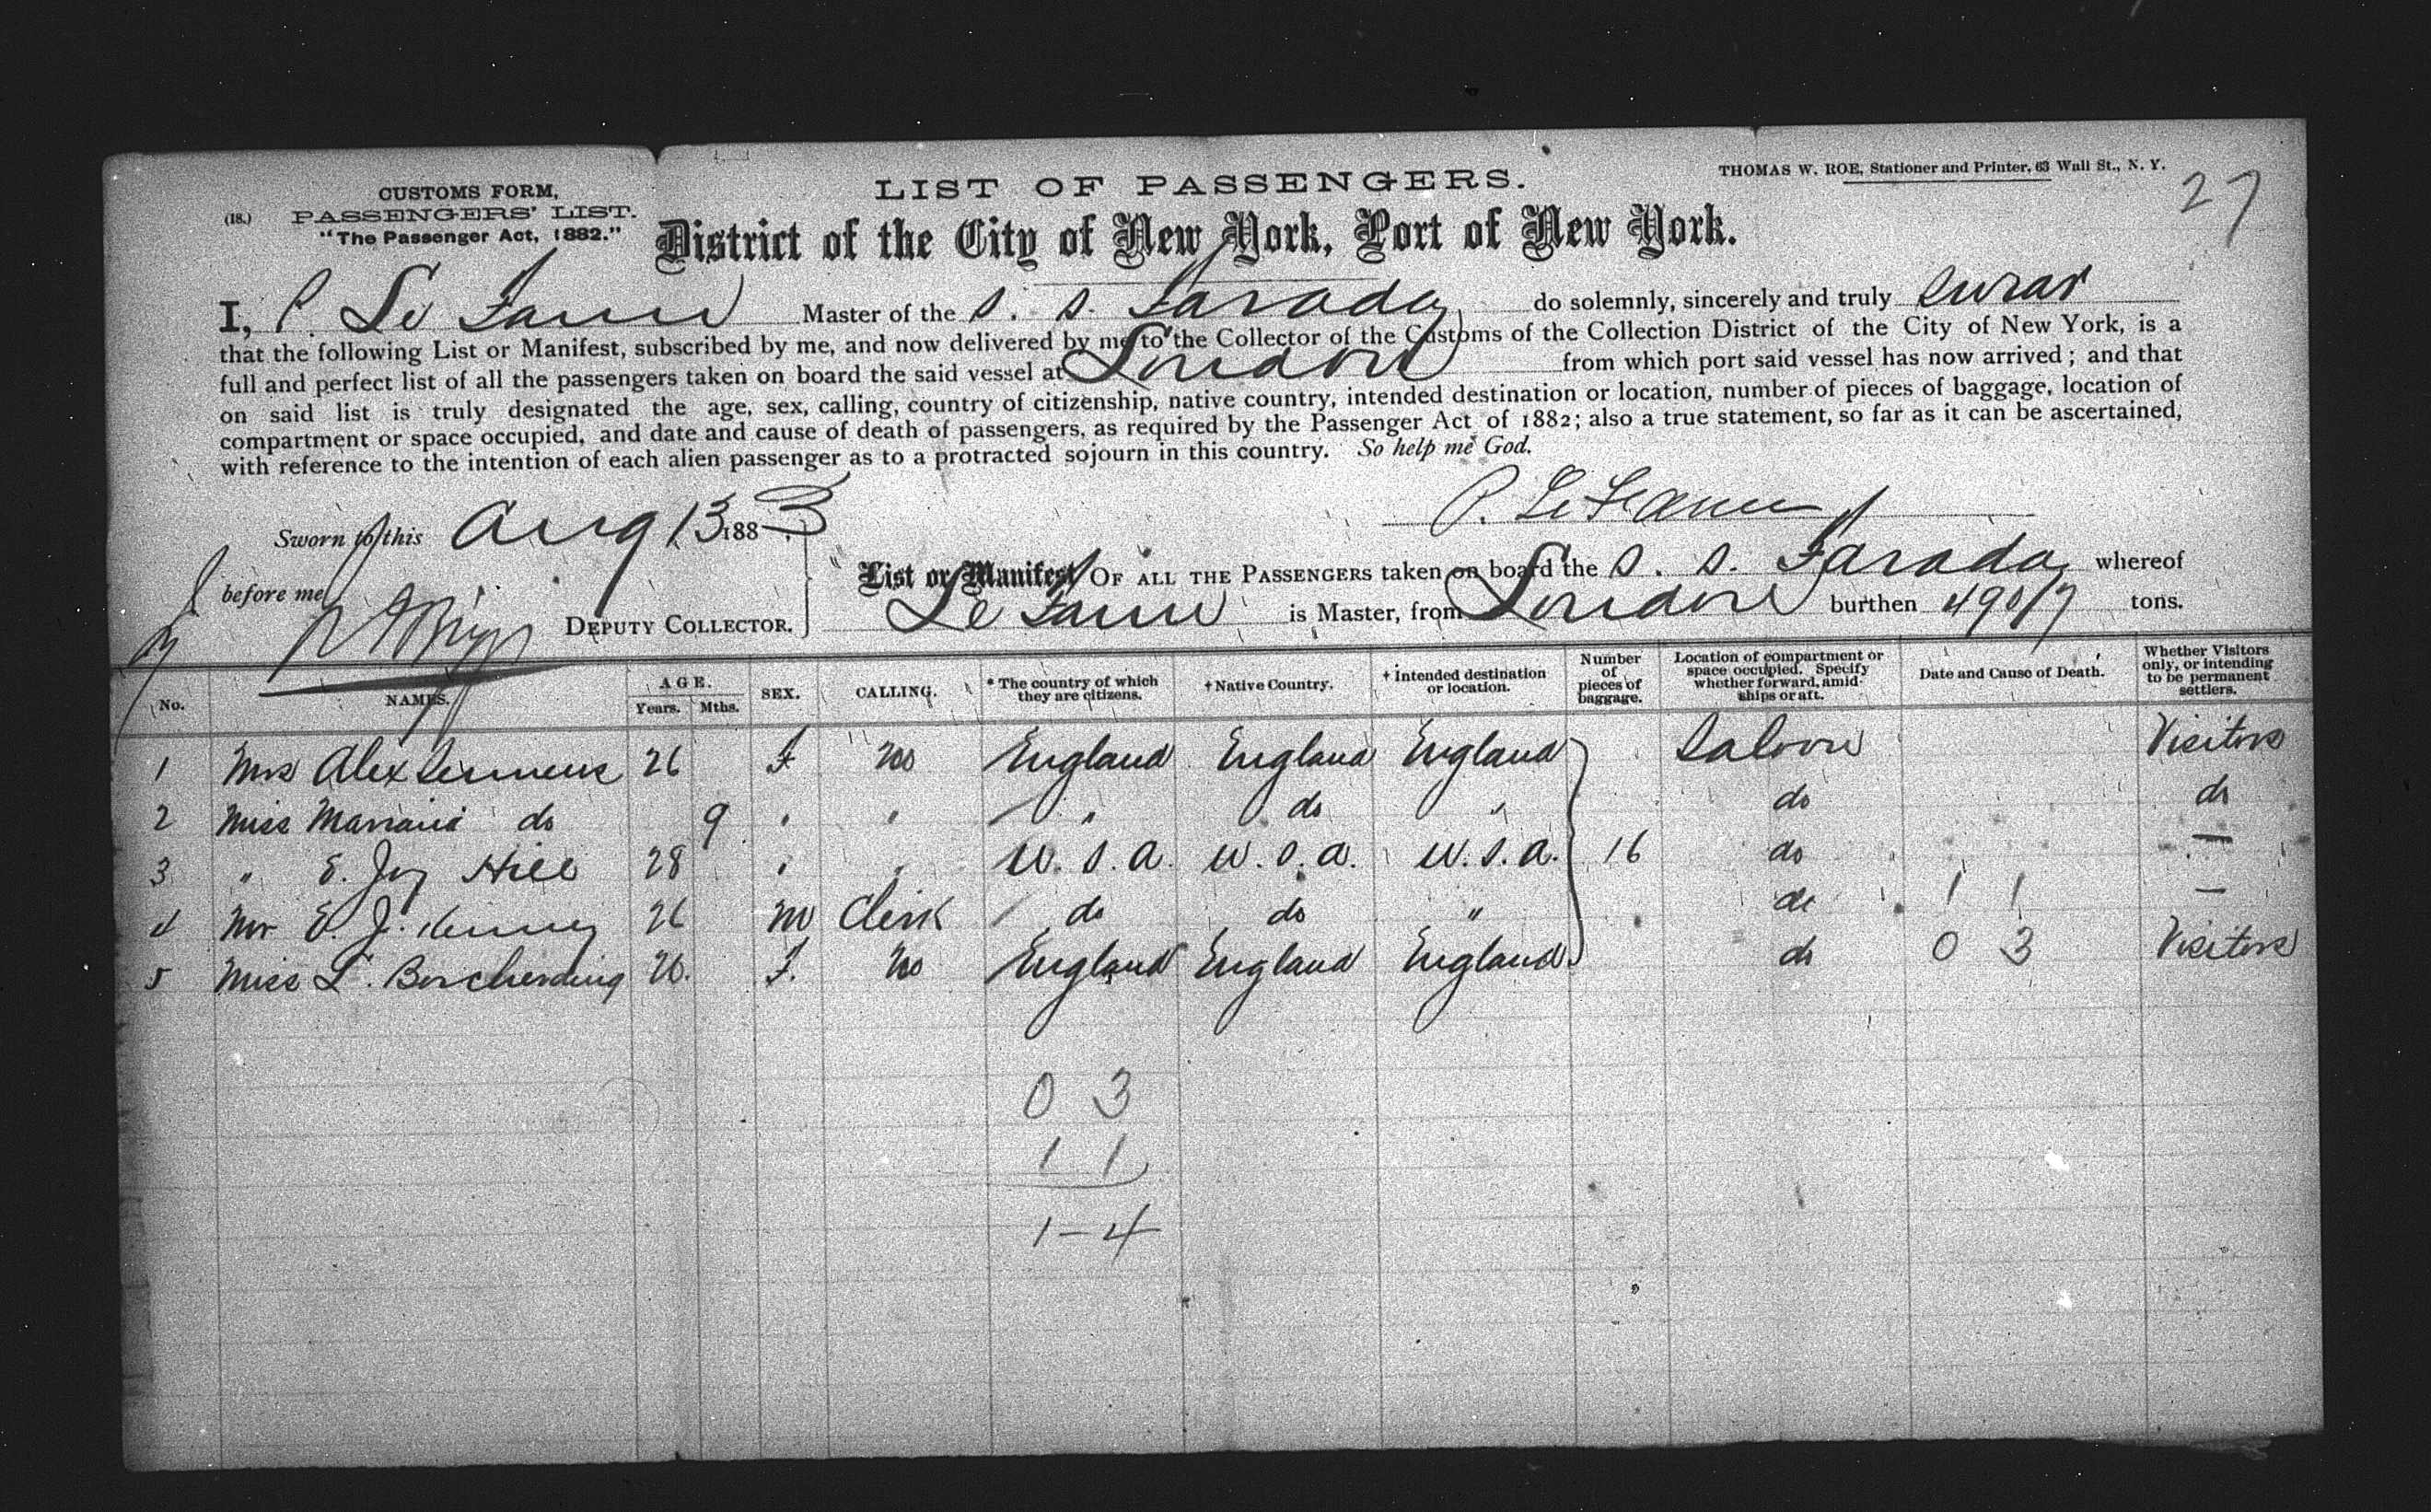 THOMAS W. ROE, Stationer and Printer, 63 Wall St., N. Y.
27
CUSTOMS FORM,
(18.) PASSENGERS' LIST.
"The Passenger Act, 1882."
LIST OF PASSENGERS.
District of the City of New York, Port of New York.
I, P. Le Fanu Master of the S. S. Faraday do solemnly, sincerely and truly swear
that the following List or Manifest, subscribed by me, and now delivered by me to the Collector of the Customs of the Collection District of the City of New York, is a
full and perfect list of all the passengers taken on board the said vessel at London from which port said vessel has now arrived; and that
on said list is truly designated the age, sex, calling, country of citizenship, native country, intended destination or location, number of pieces of baggage, location of
compartment or space occupied, and date and cause of death of passengers, as required by the Passenger Act of 1882; also a true statement, so far as it can be ascertained,
with reference to the intention of each alien passenger as to a protracted sojourn in this country. So help me God.
P. Le Fanu
Sworn to this Aug 13 1883
before me
DEPUTY COLLECTOR.
List or Manifest OF ALL THE PASSENGERS taken on board the S. S. Faraday whereof
Le Fanu is Master, from London burthen 4907 tons.
No. NAMES. AGE. Years. Mths. SEX. CALLING. * The country of which they are citizens. † Native Country. † Intended destination or location. Number of pieces of baggage. Location of compartment or space occupied. Specify whether forward, amidships or aft. Date and Cause of Death. Whether Visitors only, or intending to be permanent settlers.
1 Mrs Alex Siemens 26 F No England England England Saloon Visitors
2 Miss do 9 " " " do " do do
3 " E. Joy Hill 28 " " U.S.A. U.S.A. U.S.A. 16 do —
4 Mr E. J. 26 M Clerk do do " do 1 1 —
5 Miss L. Borcherding 26. F. No England England England do 0 3 Visitors
0 3
1 1
1 - 4